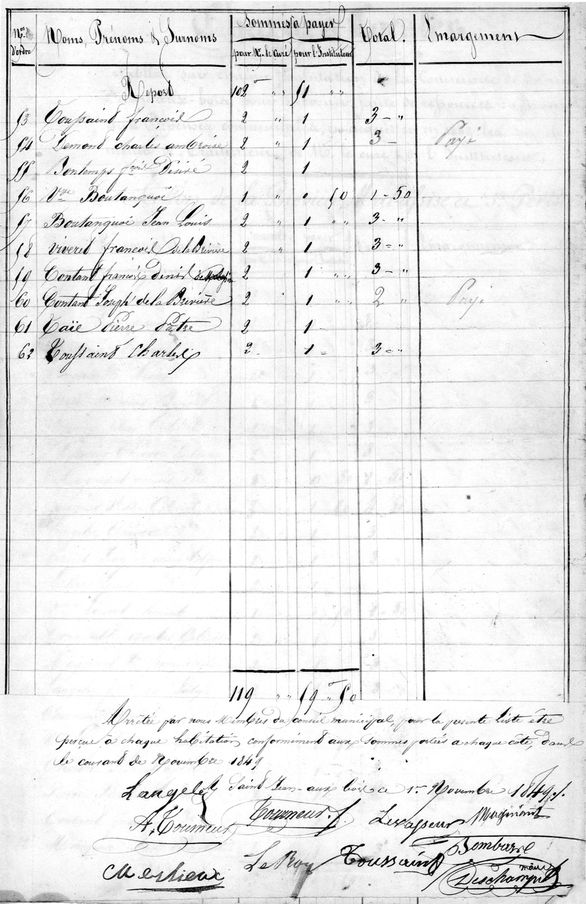 Nos d'ordre Noms, Prénoms & Surnoms Sommes à payer Total. Emargement
pour Mr. le Curé pour l'Instituteur
Report 102 " " 51 " "
53 Toussaint francois 2 " 1 3 - "
54 Lemond charles ambroise 2 " 1 3 - Payé
55 Bontemps fois Désiré 2 1
56 Vve Boutanquoi 1 " " 50 1 - 50
57 Boutanquoi Jean Louis 2 " 1 " " 3 - "
58 Viveret francois de la Brivière 2 " 1 3 - "
59 Contant francois denis 2 1 " " 3 - "
60 Contant Joseph de la Brivière 2 1 " " 2 " Payé
61 Caïe Pierre Patre 2 1 -
62 Toussaint Charles 2 - 1 - 3 - "
119 " " 59 50
Arrêtée par nous Membres du conseil municipal, pour la presente liste être
perçue à chaque habitation conformément aux sommes portées a chaque coté, dans
le courant de Novembre 1849
Saint Jean-aux bois ce 1er Novembre 1849.
Langelot
A. Tourneur Tourneur Levasseur
Bombarre
LeRoy Toussaint Deschamps maire